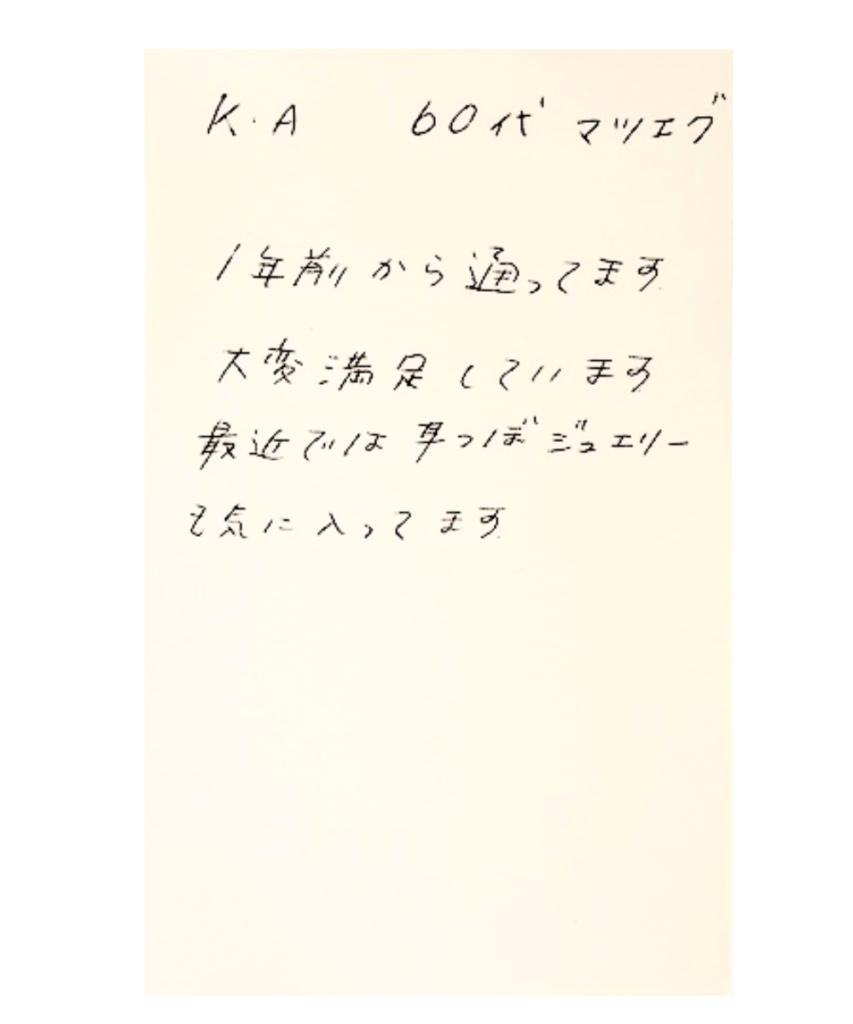 K・A 60代 マツエグ
1年前から通ってます
大変満足しています
最近では耳つぼジュエリー
も気に入ってます